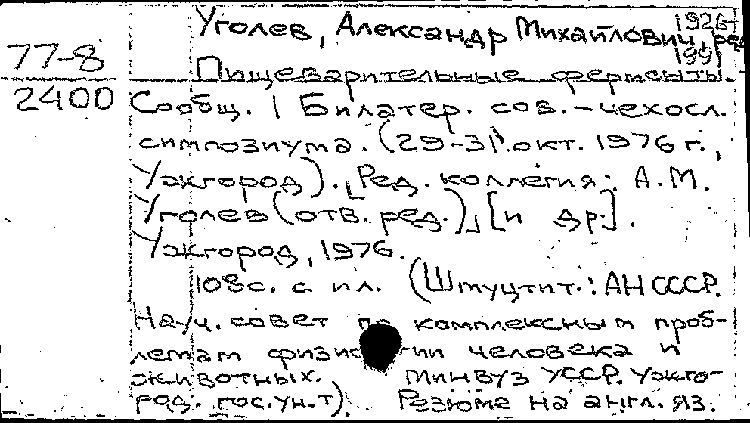 Уголев, Александр Михайлович, ред
1926-
1991
77-8
2400
Пищеварительные ферменты.
Сообщ. | Билатер. сов.-чехосл.
симпозиума. (29-31 окт. 1976 г.,
Ужгород). [Ред. коллегия: А.М.
Уголев (отв. ред.)], [и др.].
Ужгород, 1976.
108с. с ил. (Шмуцтит.: АН СССР.
Науч. совет по комплексным проб-
лемам физиологии человека и
животных. Минвуз УССР. Ужго-
род. гос. ун.т). Резюме на англ. яз.